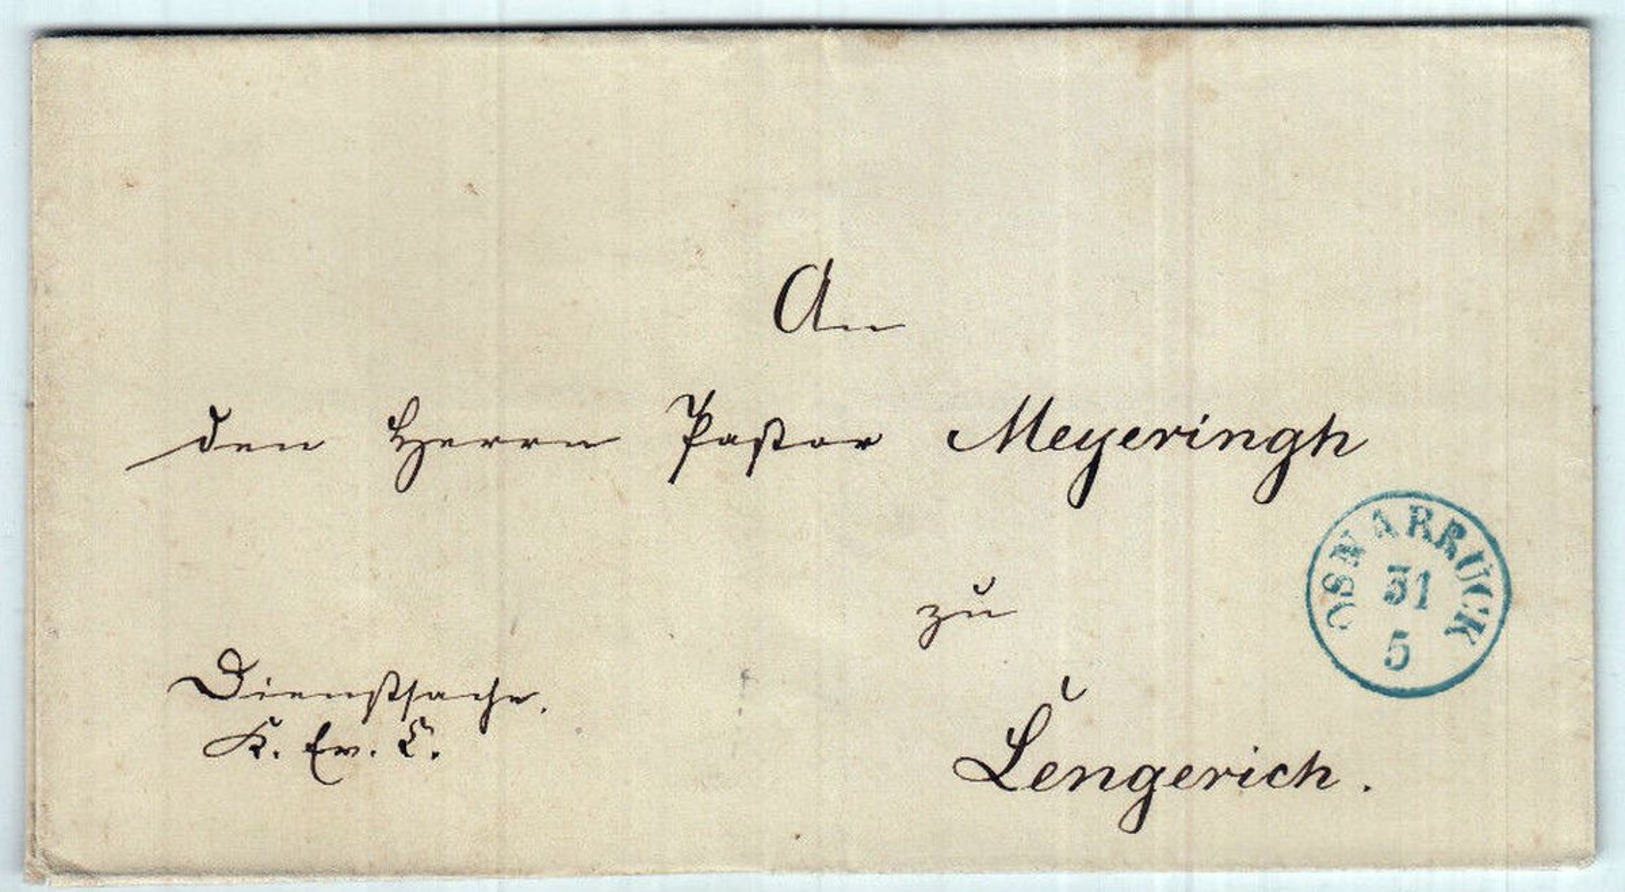 An
den Herrn Pastor Meyeringh
OSNABRÜCK
31
5
zu
Dienstsache.
Lengerich.
K. Ev. C.